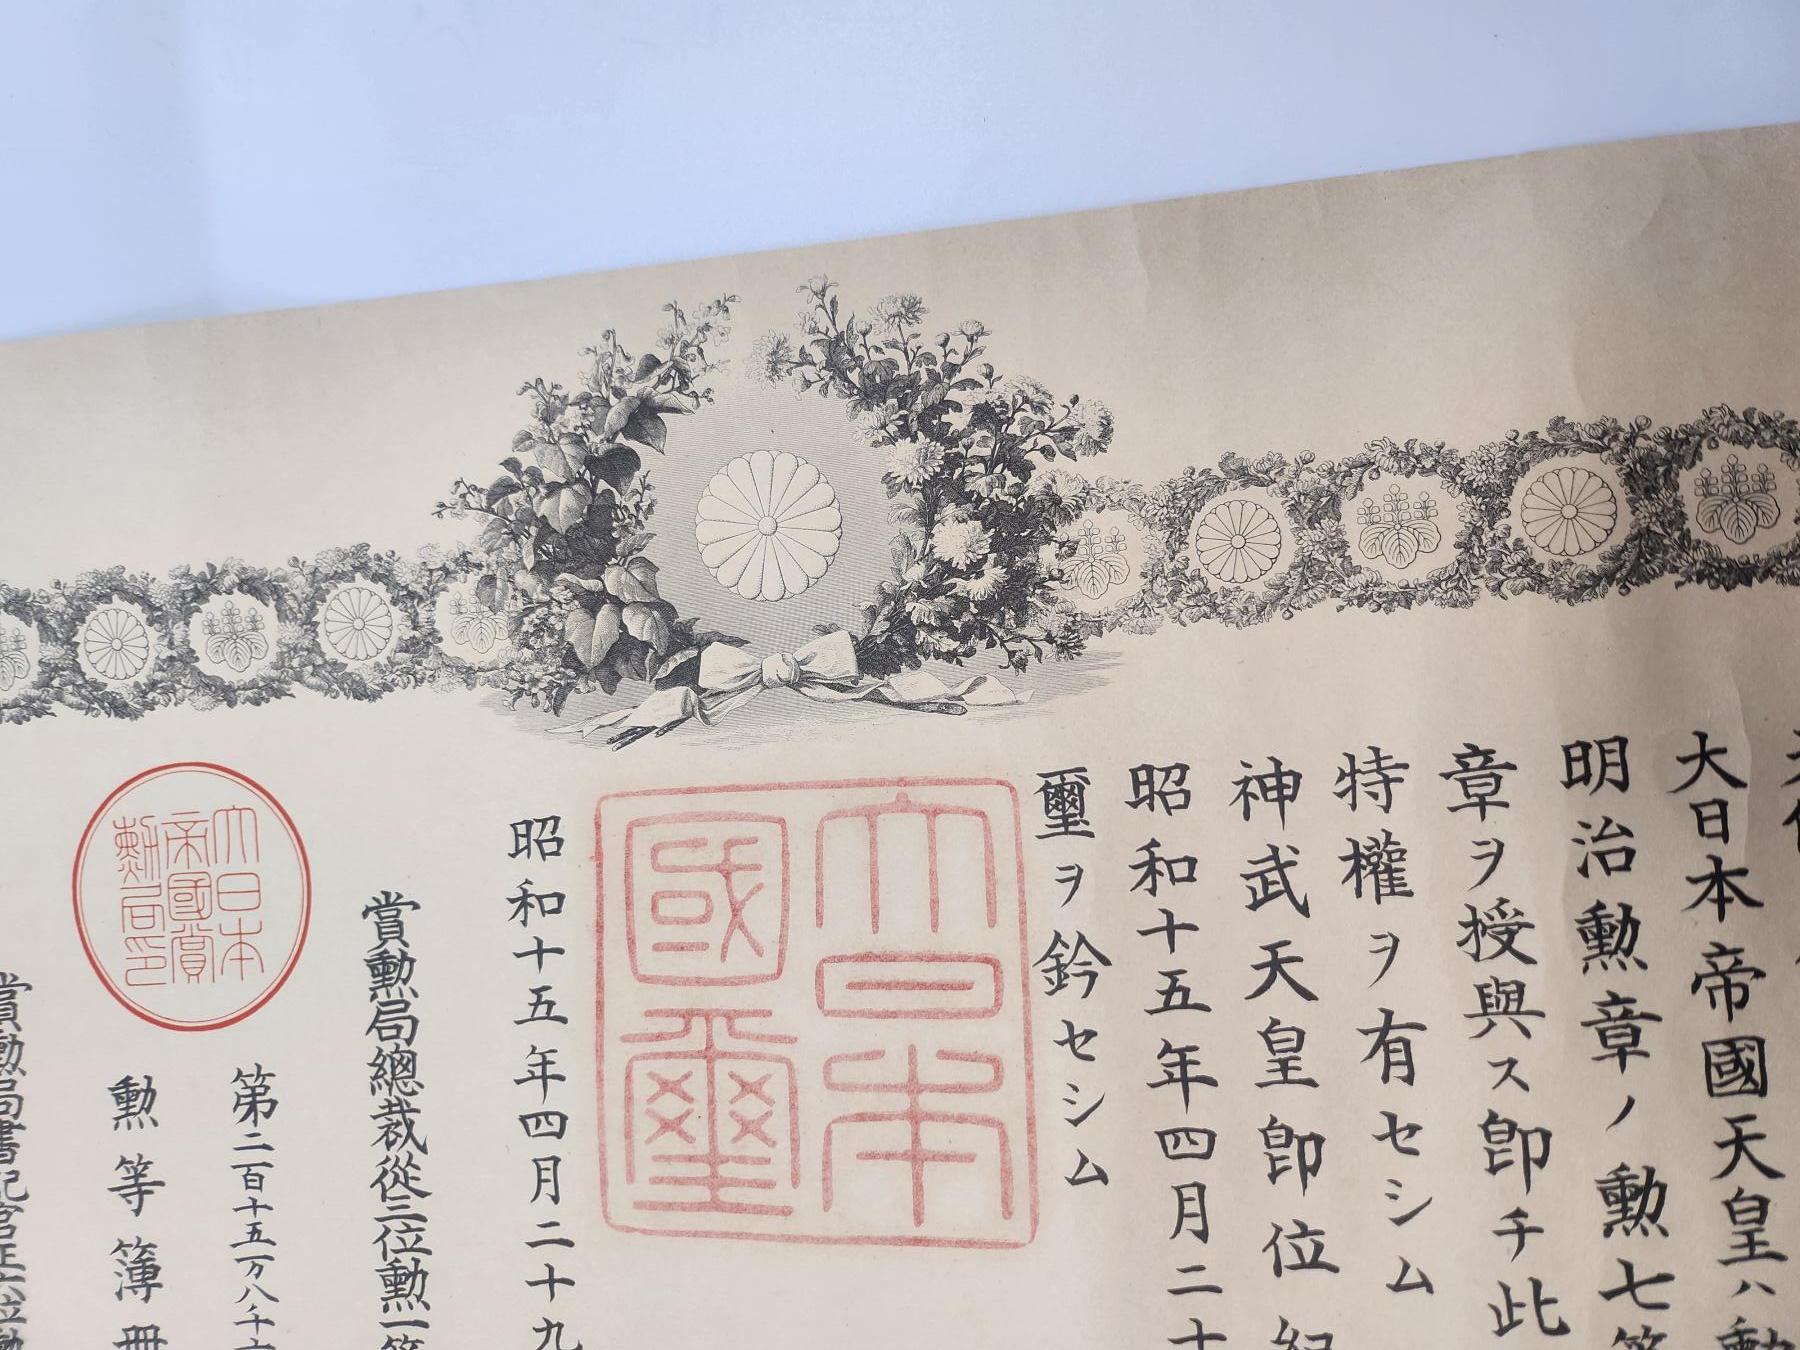 大日本帝國天皇ハ勳
明治勳章ノ勳七等
章ヲ授與ス卽チ此
特權ヲ有セシム
神武天皇卽位紀
昭和十五年四月二十
璽ヲ鈐セシム
大日本
國璽
昭和十五年四月二十九
賞勳局總裁從三位勳一等
第二百十五万八千六
大日本
帝國賞
勳局印
勳等簿冊
賞勳局書記官正六位勳